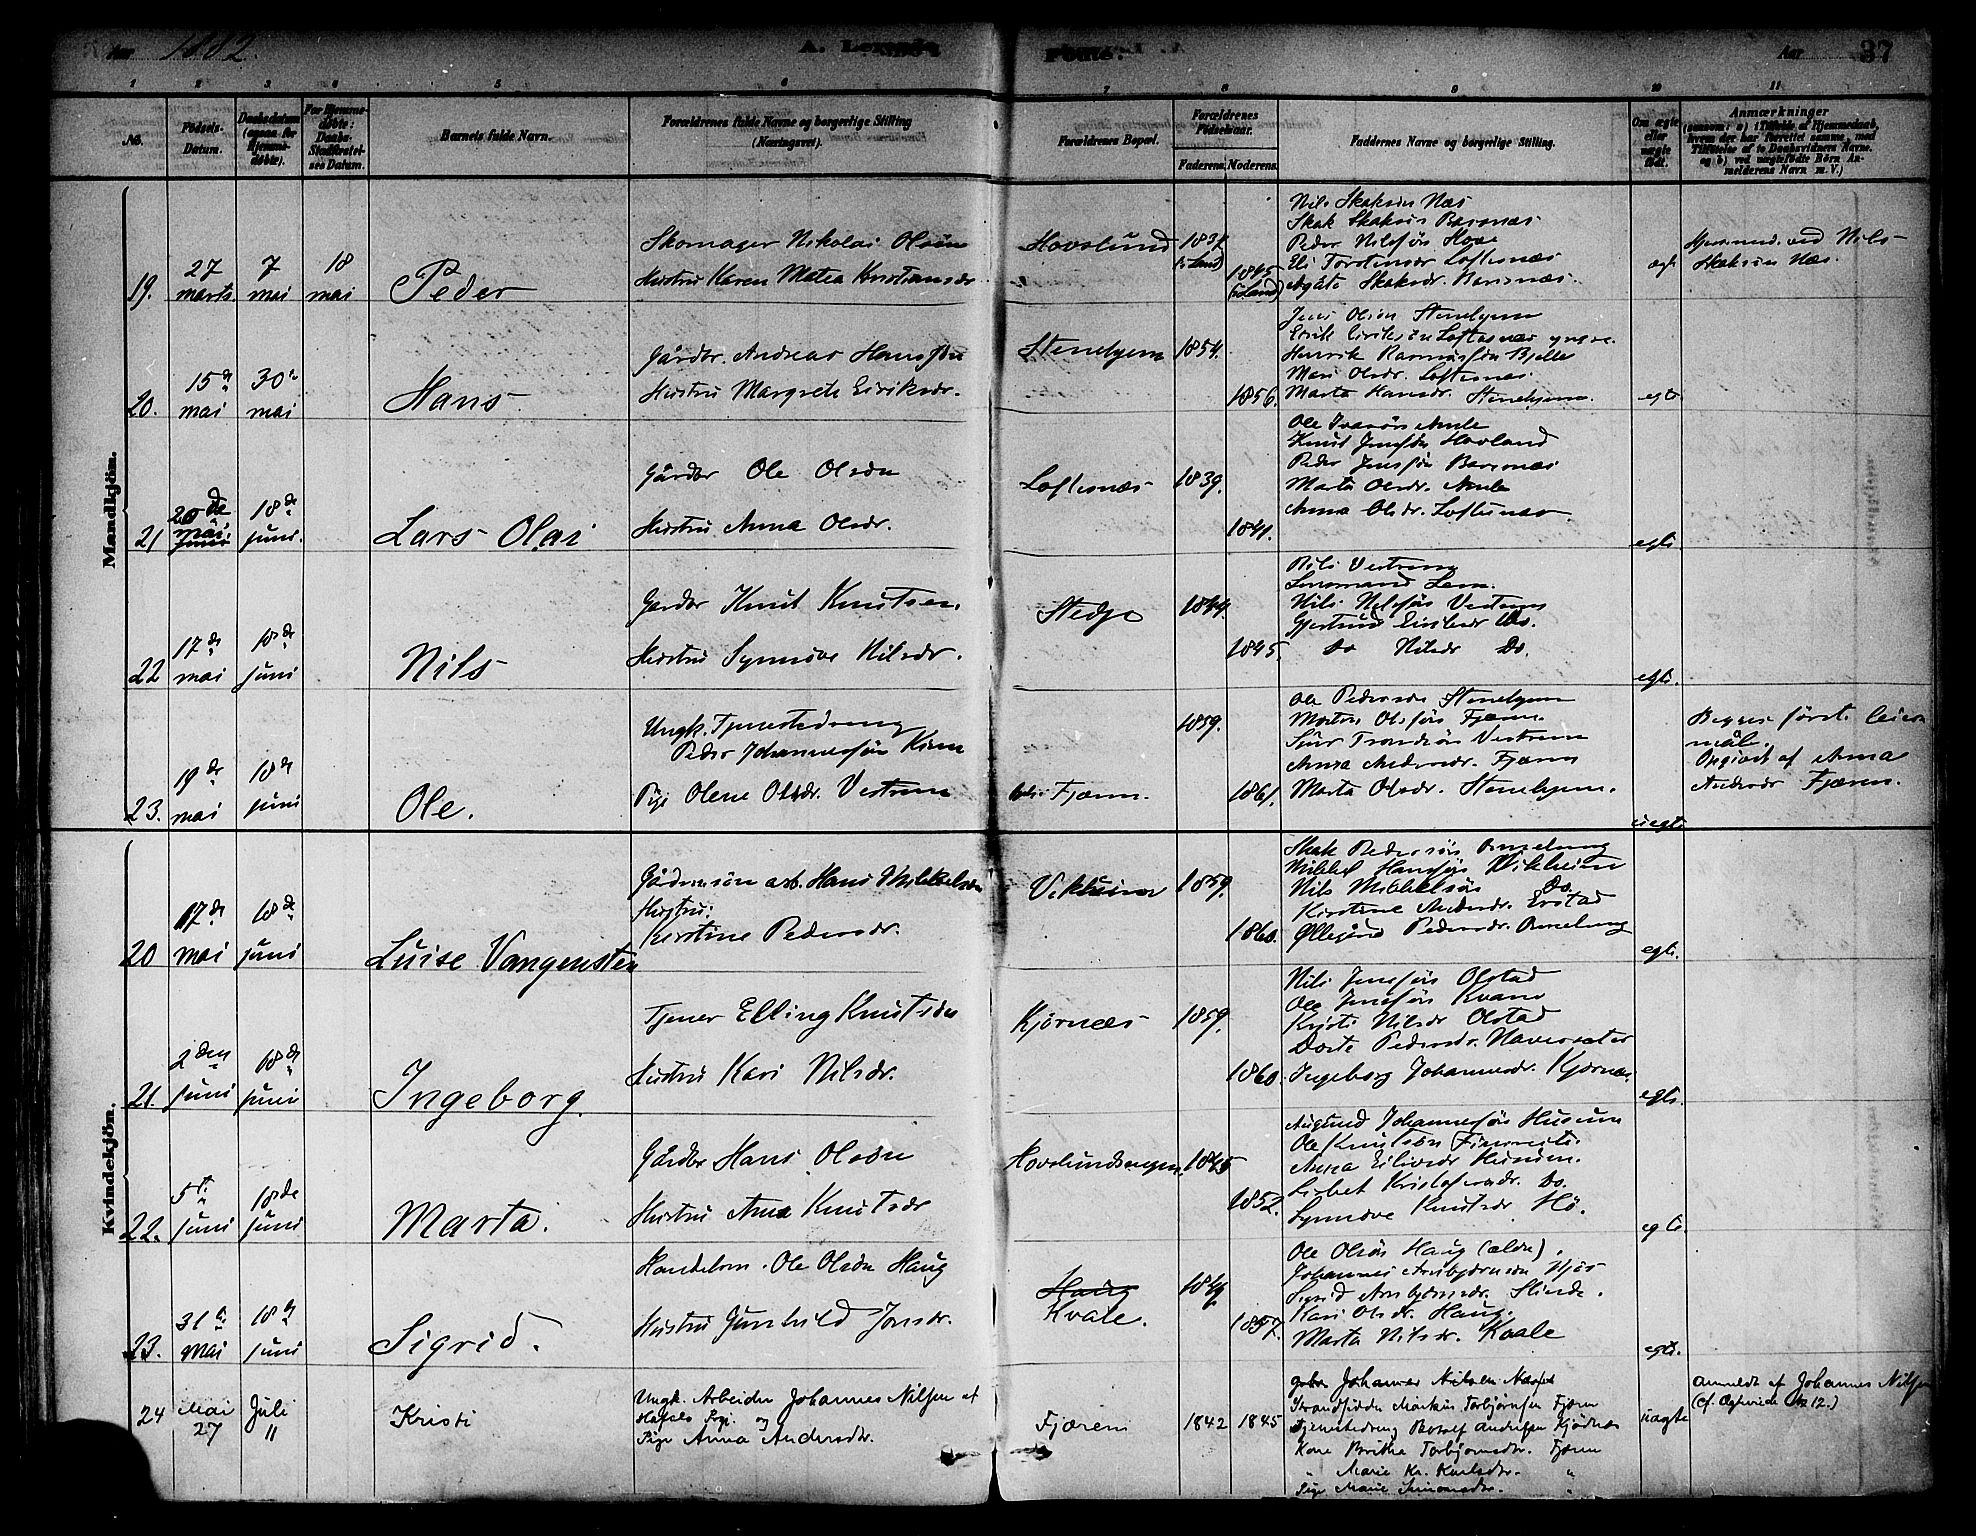 Aar 1882.
A. Levende Fødte.
Aar 37
1 2 3 4 5 6 7 8 9 10 11
No.
Fødsels-Datum.
Daabsdatum (ogsaa for Hjemmedøbte).
For Hjemmedøbte: Daabs-Stadfæstelses Datum.
Barnets fulde Navn.
Forældrenes fulde Navne og borgerlige Stilling (Næringsvei).
Forældrenes Bopæl.
Forældrenes Fødselsaar.
Faderens. Moderens.
Faddernes Navne og borgerlige Stilling.
Om ægte eller uægte født.
Anmærkninger
Mandkjön.
19.
27 marts
7 mai
18 mai
Peder
Skomager Nikolai Olsen
Hustru Karen Matea Kristiansdr
Hovslund
(i Land)
1845
(i Land)
Nils Skaksön Næs
Skak Skaksön Barsnæs
Peder Nilsson Hove
Eli Torstensdr Loftesnæs
Agåte Skaksdr. Barsnæs.
ægt
Hjemmed. ved Nils
Skaksön Næs.
20.
15de mai
30te mai
Hans
Gårdbr. Andreas Hansson
Hustru Margrete Eiriksdr.
Stenehjem
1854.
1856.
Jens Olson Stenehjem
Eirik Eirikson Loftesnæs yngre.
Henrik Rasmusson Bjelle
Mari Olsdr. Loftesnæs.
Marta Hansdr. Stenehjem.
egte
21
20de mai
juni
18de juni.
Lars Olai
Gårdbr Ole Olson
Hustru Anna Olsdr.
Loftesnæs
1839.
1841.
Ole Ivarsön Amle
Knut Jensson Hovland
Peder Jensson Barsnæs
Marta Olsdr. Amle
Anna Olsdr. Loftesnæs.
egte.
22
17de mai
18de juni
Nils
Gardbr Knut Knutsen.
Hustru Synnöve Nilsdr.
Stedje
1844.
1845.
Nils Vestrum
Lensmand Lem.
Nils Nilsson Vestrum
Gjertrud Eiriksdr Do.
Do Nilsdr Do.
egte.
23.
19de mai
18de juni
Ole.
Ungk. Tjenestedreng
Peder Johannesson
Pige Olene Olsdr. Vestrum
Fjærn.
1859.
1861.
Ole Pederson Stenehjem
Mons Olsson Fjærn.
Sjur Trondson Vestrum
Anna Andersdr. Fjærn
Marta Olsdr. Stenehjem.
uegte
Begges först. leiermål.
Opgivet af Anna
Andersdr Fjæren.
Kvindekjön.
20
17de mai
18de juni
Luise Vangensten
Gårdmandsön arb. Hans Mikkelsen
Hustru:
Kerstine Pedersdr.
Vikheim
1859.
1860.
Skak Pedersön Amelung
Mikkel Hansson Vikheim
Nils Mikkelsön Do.
Kirstine Andersdr. Erstad
Øllegård Pedersdr. Amelung
egte.
21.
2den juni
18de juni
Ingeborg.
Tjener Elling Knutson
Hustru Kari Nilsdr.
Kjörnæs
1859.
1860.
Nils Jensson Olstad
Ole Jensson Kvam
Kristi Nilsdr Olstad
Dorte Pedersdr. Navarsæter
Ingeborg Johannesdr. Kjörnæs.
egte.
22.
5te juni
18de juni
Marta.
Gårdbr Hans Olson
Hustru Ana Knutsdr
Hovslundsengen.
1845
1852.
Augund Johannesson Husum
Ole Knutson
Anna Eilivsdr Husum.
Lisbet Kristofersdr. Do.
Synnöve Knutsdr. Hö.
egte.
23.
31te mai
18de juni
Sigrid.
Handelsm. Ole Olson Haug
Hustru Gunhild Jonsdr.
Haug
Kvale.
1849.
1857.
Ole Olson Haug (ældre).
Johannes Arnbjörnson Njös
Sigrid Arnbjörnsdr. Slinde.
Kari Olsdr. Haug.
Marta Nilsdr. Kvale
egte.
24
Mai 27
Juli 11
Kristi
Ungk. Arbeider Johannes Nilsen af
Hafslo Sogn og
Pige Anna Andersdtr.
Fjæren
1842 1845
Gbr. Johannes Nilsen
Strandsidder Markus Torbjörnsen Fjæren
Tjenestedreng Andersen Kjörnæs
Kone Britha Torbjörnsdtr. Fjæren
" Marie Kr. Karlsdtr. "
Pige Marie Simonsdtr. "
uægte
Anmeldt af Johannes Nilsen
(Cf. No 12.)